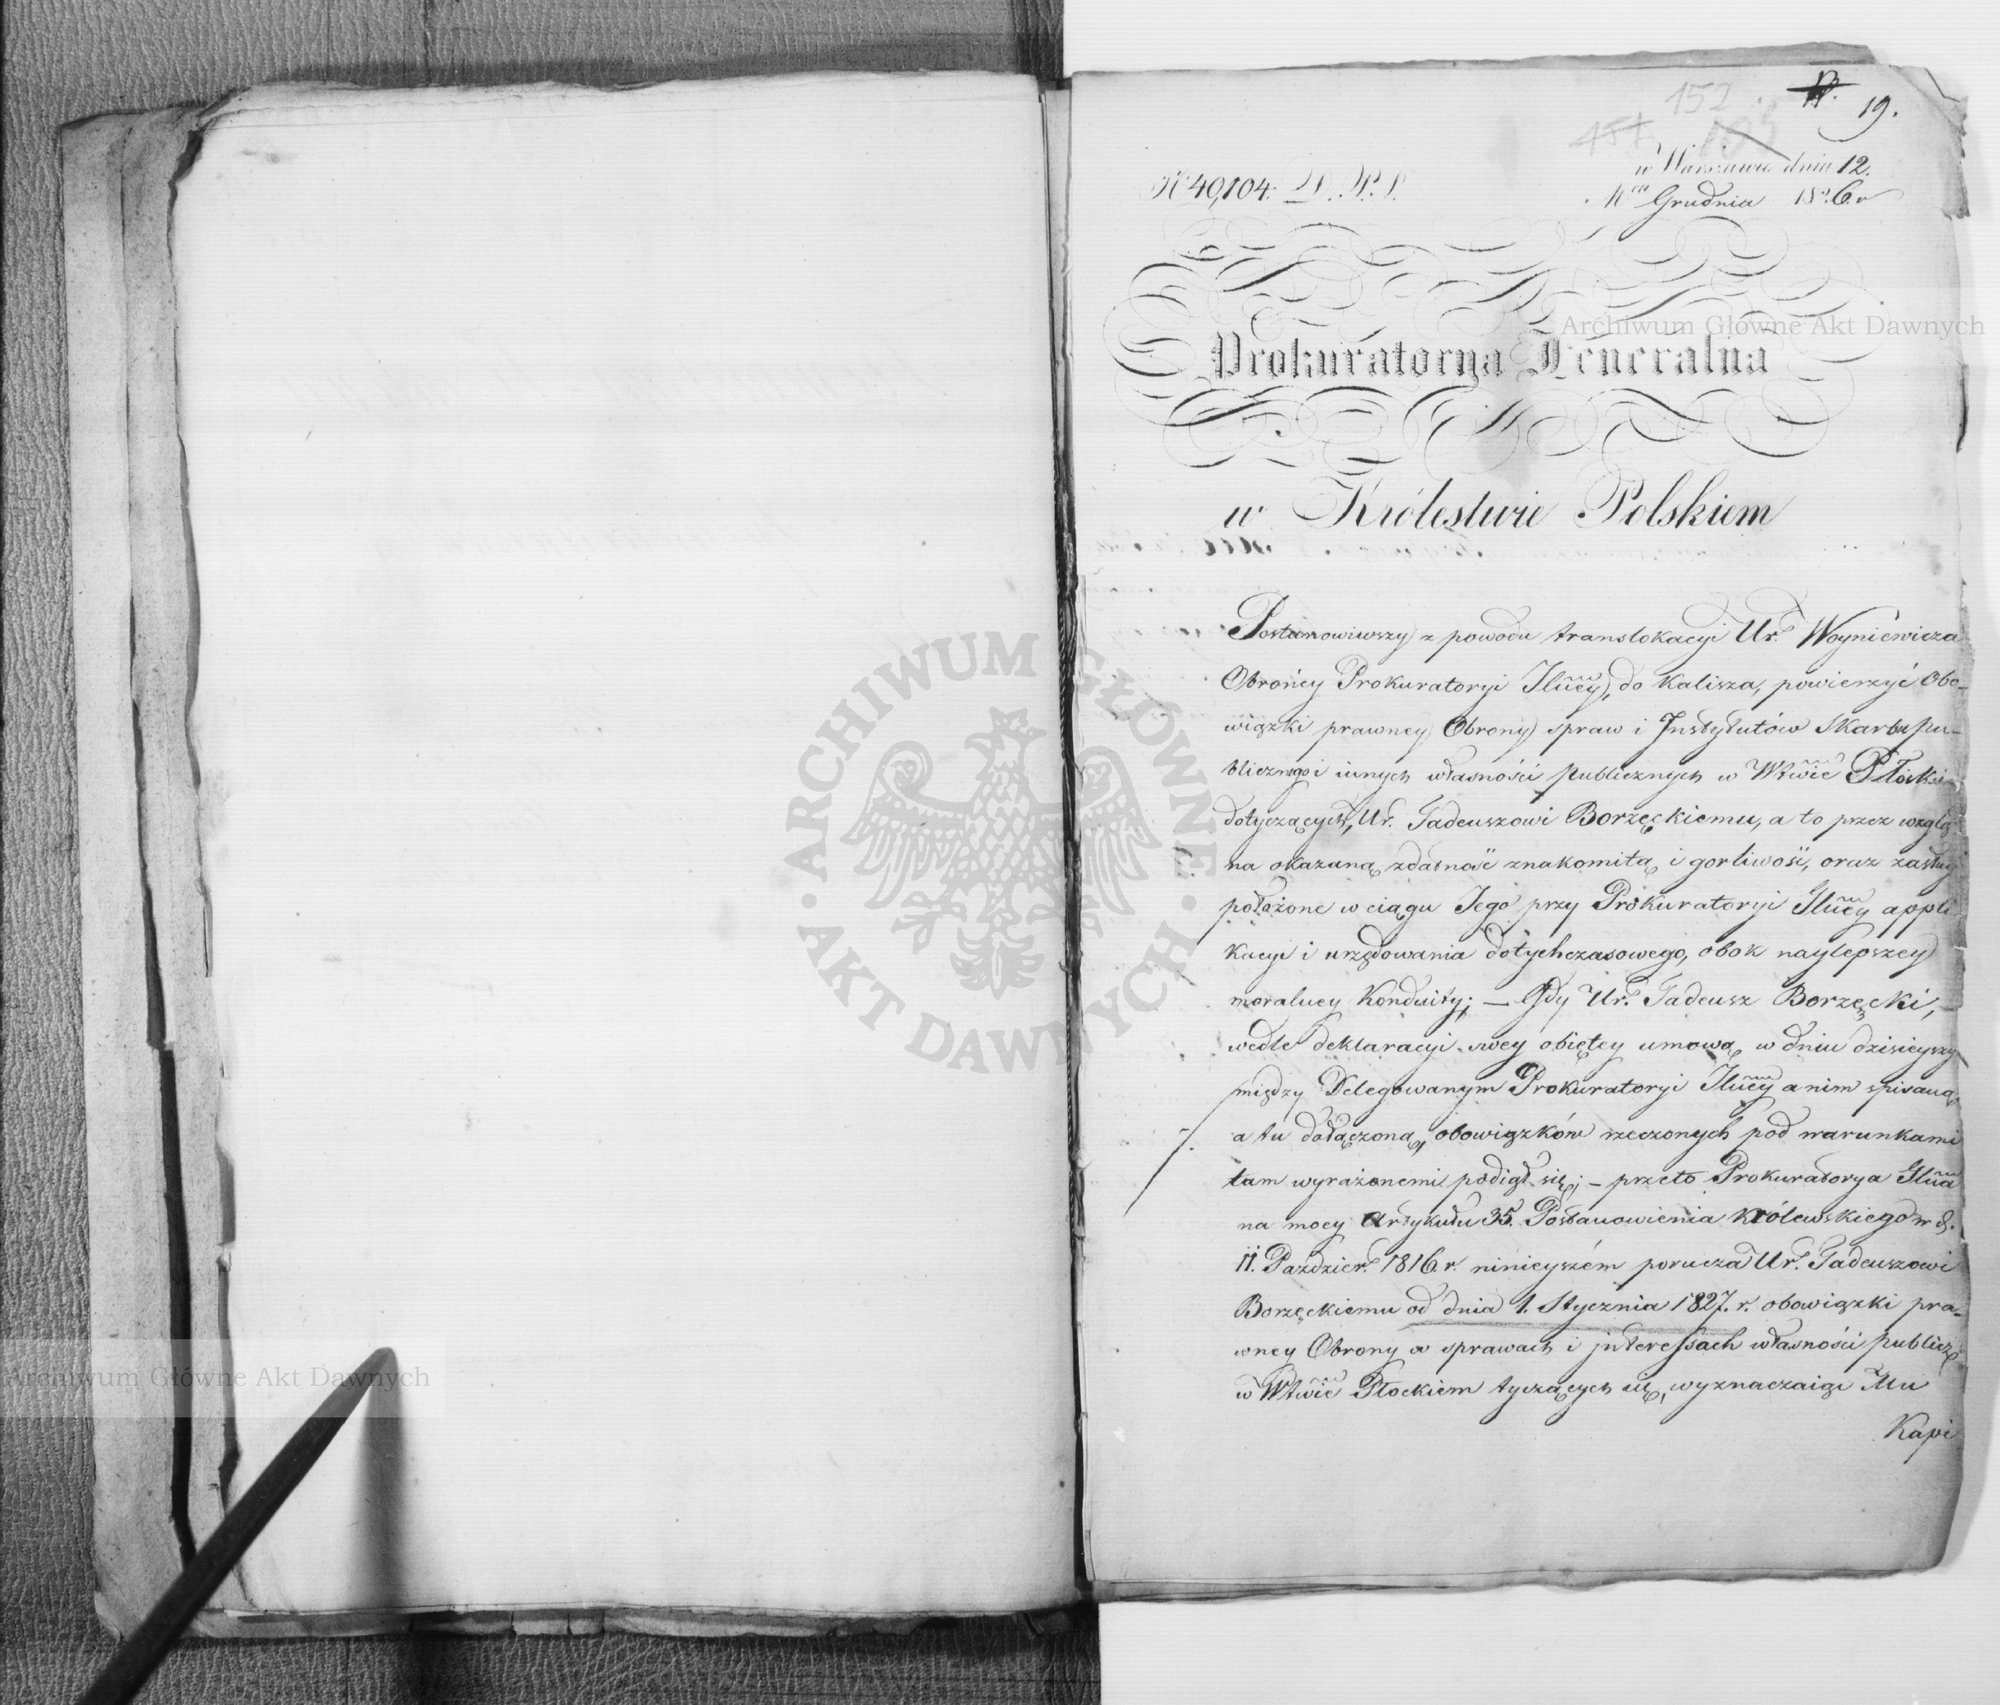 152
19.
151
w Warszawie dnia 12.
No 40,104.
Grudnia 1826. r
Prokuratorya Jeneralna
w Królestwie Polskiem
Postanowiwszy z powodu translokacyi Ur. Woyniewicza
Obrońcy Prokuratoryi Jlney, do Kalisza, powierzyć Obo-
wiązki prawney Obrony spraw i Instytutów Skarbu Pu-
blicznego i innych własności publicznych w Wtwie Płockim
dotyczących, Ur. Tadeuszowi Borzęckiemu, a to przez wzglą
na okazaną zdatność znakomitą i gorliwość, oraz zasługi
położone w ciągu Jego przy Prokuratoryi Jlney appli
kacyi i urzędowania dotychczasowego, obok naylepszey
moralney Konduity; — Gdy Ur. Tadeusz Borzęcki, —
wedle deklaracyi swey obiętey umową w dniu dzisieyszy
między Delegowanym Prokuratoryi Jlney a nim spisaną
a tu dołączoną, obowiązków rzeczonych pod warunkami
tam wyrażonemi podiął się; — przeto Prokuratorya Jlna
na mocy Artykułu 35. Postanowienia Królewskiego w d.
11. Paździer. 1816. r. ninieyszém porucza Ur. Tadeuszowi
Borzęckiemu od dnia 1. Stycznia 1827. r. obowiązki pra-
wney Obrony w sprawach i interessach własności publicz
w Wtwie Płockiem tyczących się, wyznaczaiąc Mu
Kapi
Archiwum Główne Akt Dawnych
ARCHIWUM GŁÓWNE
AKT DAWNYCH
Archiwum Główne Akt Dawnych